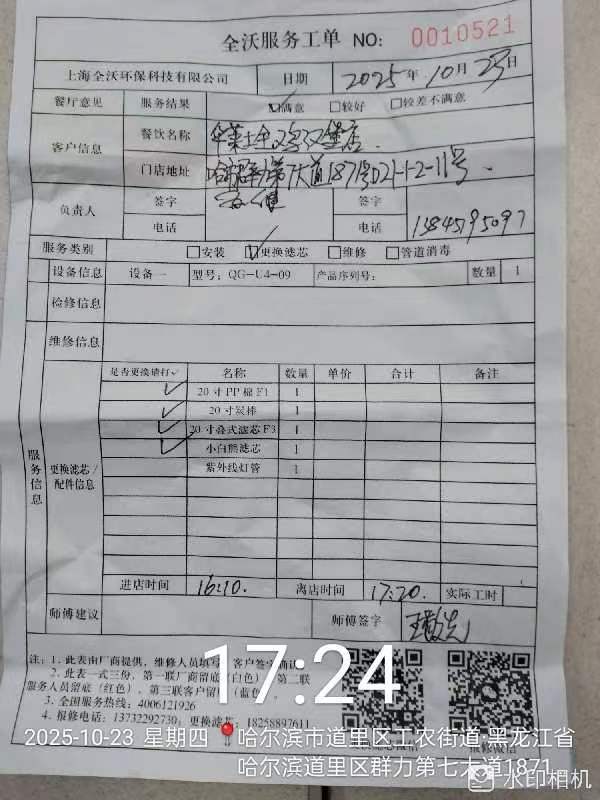 全沃服务工单 NO: 0010521
上海全沃环保科技有限公司 日期 2025年10月23日
餐厅意见 服务结果 ☑满意 □较好 □较差不满意
客户信息 餐饮名称 华莱士 汉堡店
门店地址 第7大道1871号D21-1-2-11号
负责人 签字 签字
电话 电话 13845795097
服务类别 □安装 ☑更换滤芯 □维修 □管道消毒
设备信息 设备一 型号: QG-U4-09 产品序列号: 数量 1
检修信息
维修信息
服务信息
更换滤芯/配件信息
是否更换请打✓ 名称 数量 单价 合计 备注
✓ 20寸PP棉F1 1
✓ 20寸炭棒 1
✓ 20寸叠式滤芯F3 1
✓ 小白熊滤芯 1
紫外线灯管 1
进店时间 16:10. 离店时间 17:20. 实际工时
师傅建议 师傅签字
注: 1. 此表由厂商提供, 维修人员填写, 客户签字确认
2. 此表一式三份, 第一联厂商留底(白色) 第二联
服务人员留底 (红色), 第三联客户留 (蓝色)
3. 全国服务热线: 4006121926
4. 报修电话: 13732292730, 更换滤芯: 18258897611
报修微信
17:24
2025-10-23 星期四 哈尔滨市道里区工农街道·黑龙江省
哈尔滨道里区群力第七大道1871
水印相机